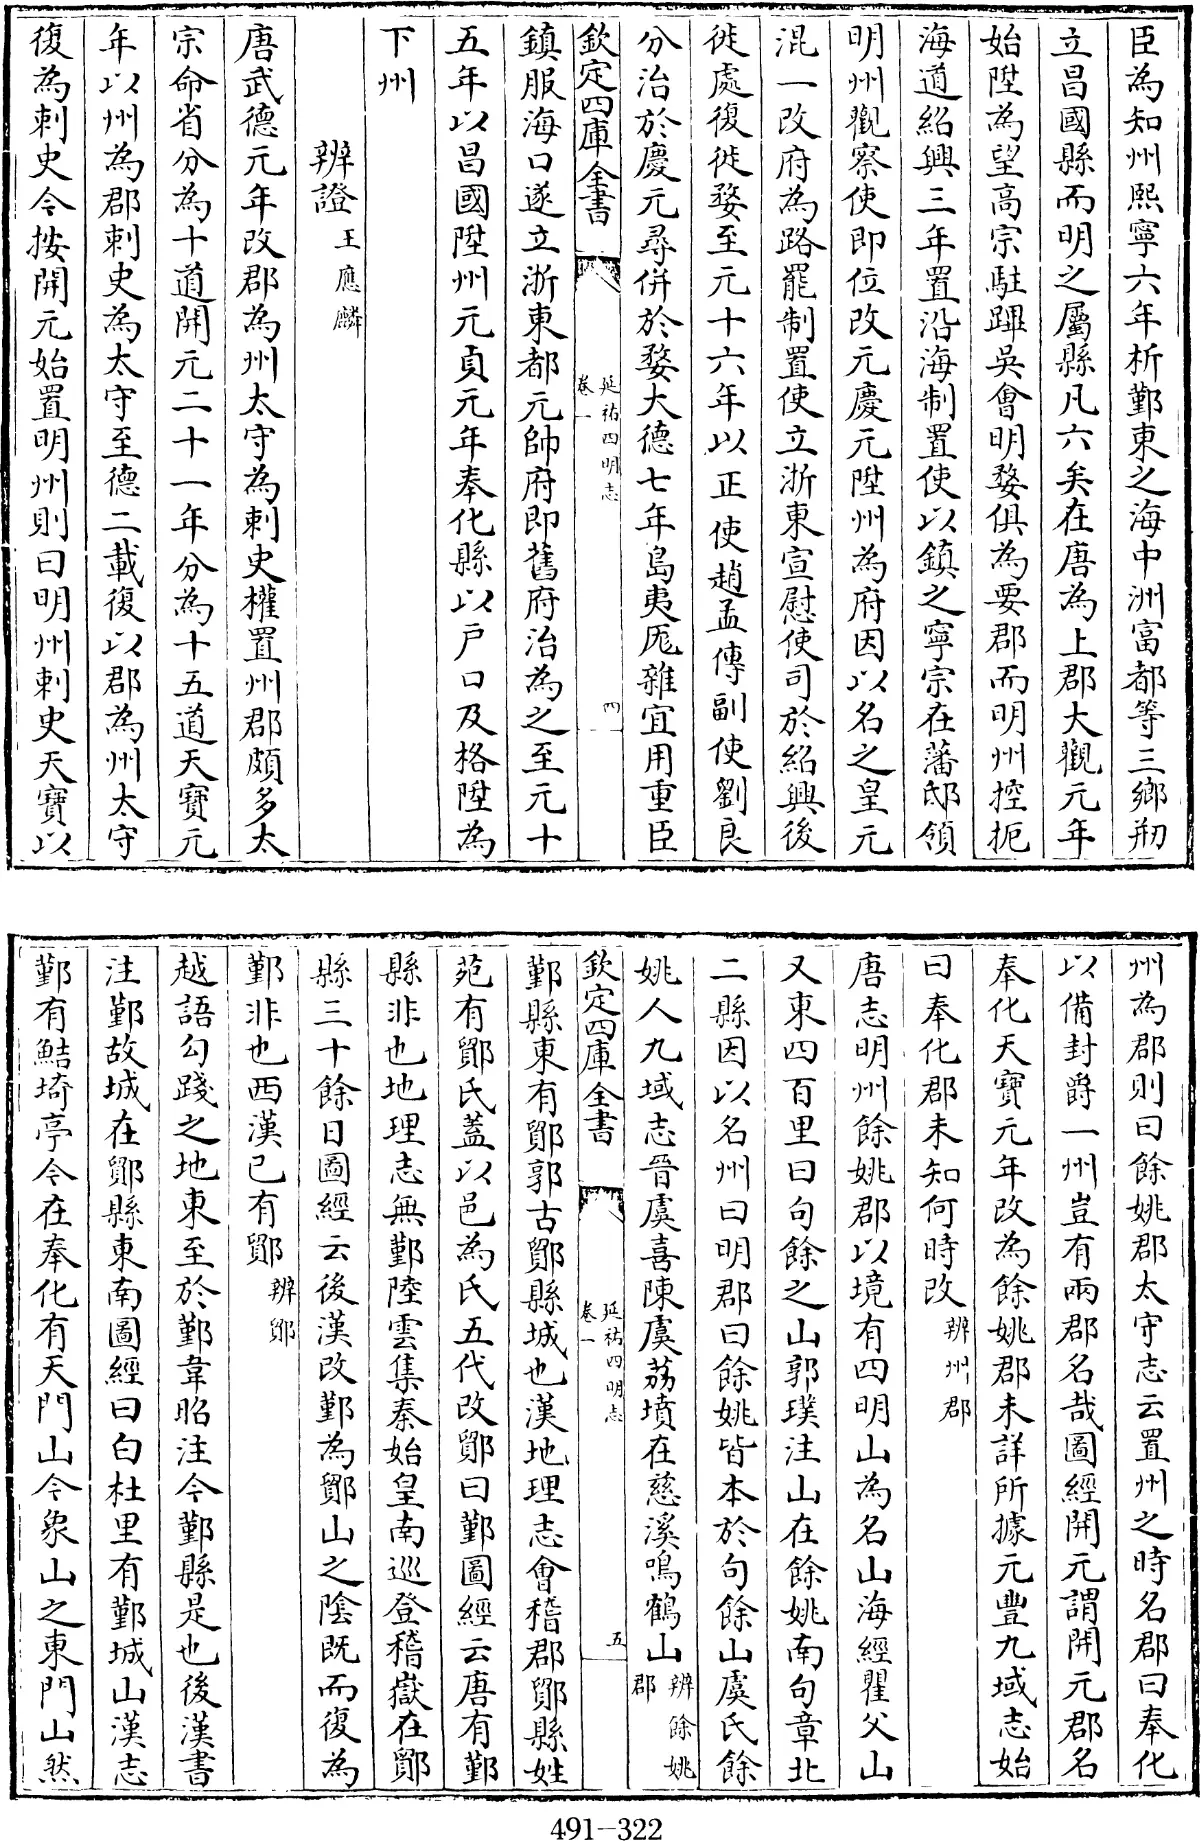 臣為知州熙寧六年析鄞東之海中洲富都等三鄉剏
立昌國縣而明之屬縣凡六矣在唐為上郡大觀元年
始陞為望高宗駐蹕吳會明婺俱為要郡而明州控扼
海道紹興三年置沿海制置使以鎮之寧宗在藩邸領
明州觀察使即位改元慶元陞州為府因以名之皇元
混一改府為路罷制置使立浙東宣慰使司於紹興後
徙處復徙婺至元十六年以正使趙孟傳副使劉良
分治於慶元尋併於婺大德七年島夷厖雜宜用重臣
欽定四庫全書
延祐四明志
卷一
四
鎮服海口遂立浙東都元帥府即舊府治為之至元十
五年以昌國陞州元貞元年奉化縣以戶口及格陞為
下州
辨證王應麟
唐武德元年改郡為州太守為刺史權置州郡頗多太
宗命省分為十道開元二十一年分為十五道天寶元
年以州為郡刺史為太守至德二載復以郡為州太守
復為刺史今按開元始置明州則曰明州刺史天寶以
州為郡則曰餘姚郡太守志云置州之時名郡曰奉化
以備封爵一州豈有兩郡名哉圖經開元謂開元郡名
奉化天寶元年改為餘姚郡未詳所據元豐九域志始
曰奉化郡未知何時改辨州郡
唐志明州餘姚郡以境有四明山為名山海經瞿父山
又東四百里曰句餘之山郭璞注山在餘姚南句章北
二縣因以名州曰明郡曰餘姚皆本於句餘山虞氏餘
姚人九域志晉虞喜陳虞荔墳在慈溪鳴鶴山辨餘姚
郡
欽定四庫全書
延祐四明志
卷一
五
鄞縣東有鄮郭古鄮縣城也漢地理志會稽郡鄮縣姓
苑有鄮氏蓋以邑為氏五代改鄮曰鄞圖經云唐有鄞
縣非也地理志無鄞陸雲集秦始皇南巡登稽嶽在鄮
縣三十餘日圖經云後漢改鄞為鄮山之陰既而復為
鄞非也西漢已有鄮辨鄮
越語勾踐之地東至於鄞韋昭注今鄞縣是也後漢書
注鄞故城在鄮縣東南圖經曰白杜里有鄞城山漢志
鄞有鮚埼亭今在奉化有天門山今象山之東門山然
491-322